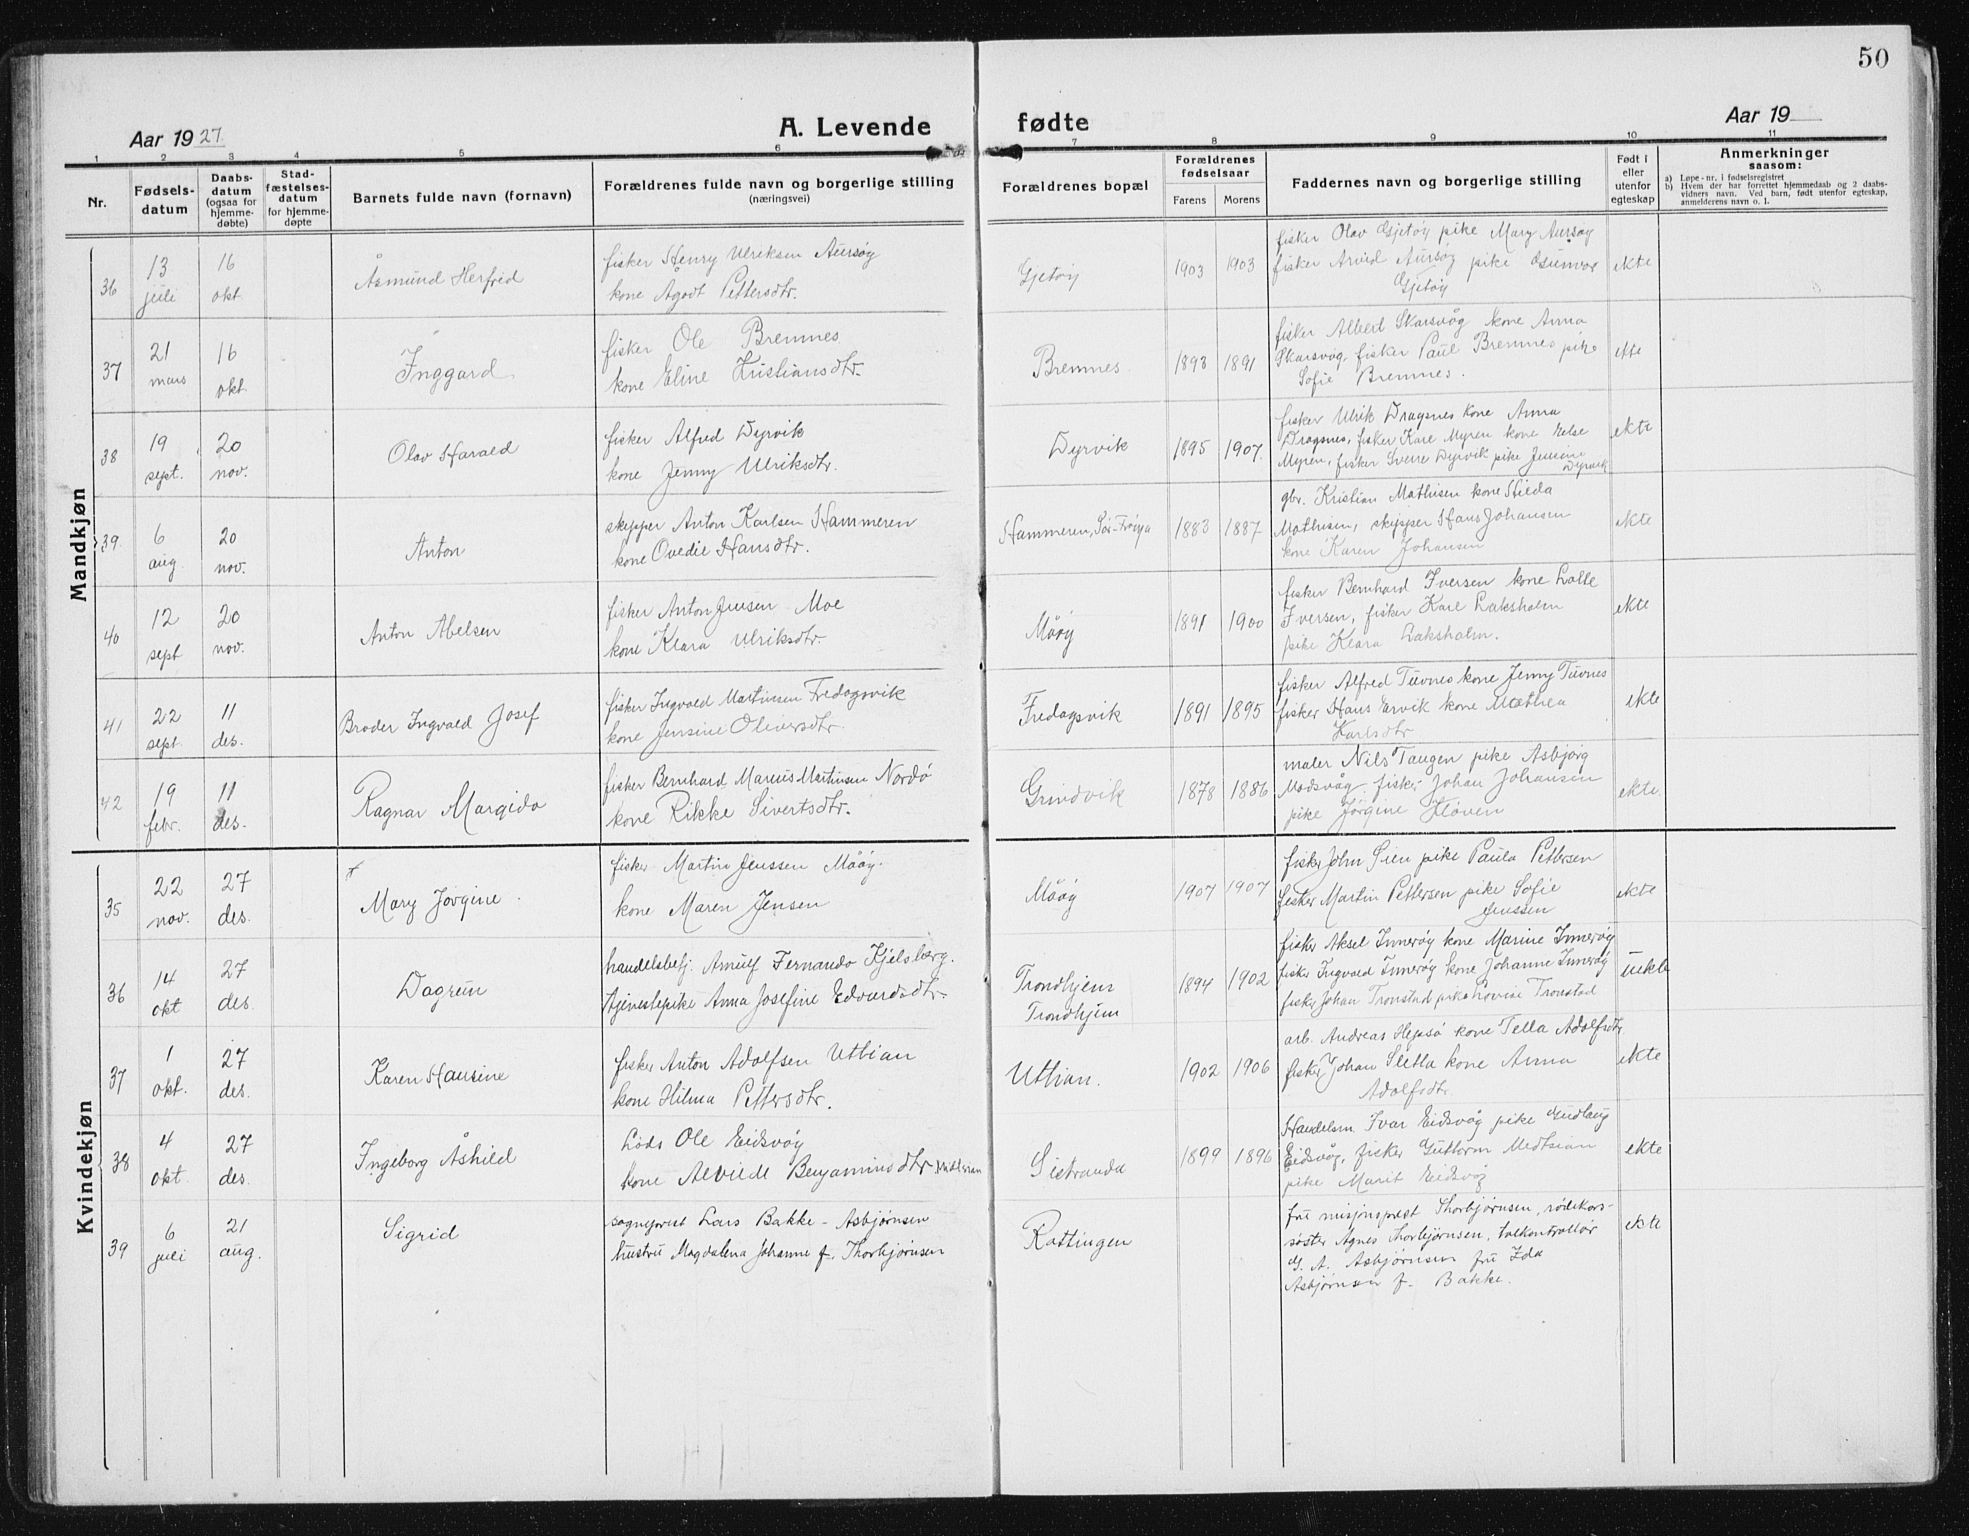 50
Aar 1927
A. Levende fødte
Aar 19
1 2 3 4 5 6 7 8 9 10 11
Nr.
Fødsels-datum
Daabs-datum (ogsaa for hjemme-døbte)
Stad-fæstelses-datum for hjemme-døpte
Barnets fulde navn (fornavn)
Forældrenes fulde navn og borgerlige stilling (næringsvei)
Forældrenes bopæl
Forældrenes fødselsaar
Farens Morens
Faddernes navn og borgerlige stilling
Født i eller utenfor egteskap
Anmerkninger saasom:
a) Løpe-nr. i fødselsregistret
b) Hvem der har forrettet hjemmedaab og 2 daabs-vidners navn. Ved barn, født utenfor egteskap, anmelderens navn o. l.
Mandkjøn
36 13 juli 16 okt Åsmund Herfred
fisker Henry Ulriksen Aursøy
kone Ågodt Pettersdtr.
Gjetøy 1903 1903
fisker Olav Gjetøy pike Mary Aursøy
fisker Arvid Aursøy pike
Gjetøy
ekte
37 21 mars 16 okt Inggard
fisker Ole Bremnes
kone Eline Kristiansdtr.
Bremnes 1893 1891
fisker Albert Skarsvåg kone Anna
Skarsvåg, fisker Paul Bremnes pike
Sofie Bremnes.
ekte
38 19 sept. 20 nov. Olav Harald
fisker Alfred Dyrvik
kone Jenny Ulriksdtr.
Dyrvik 1895 1907.
fisker Ulrik Dragsnes kone Anna
Dragsnes, fisker Kare Myren kone Else
Myren, fisker Sverre Dyrvik pike Jensine
Dyrvik
ekte
39. 6 aug. 20 nov. Anton
skipper Anton Karlsen Hammeren
kone Ovedie Hansdtr.
Hammeren, Sør-Frøya 1883 1887
gbr. Kristian Mathisen kone Hilda
Mathisen, skipper Hans Johansen
kone Karen Johansen
ekte
40 12 sept 20 nov. Anton Abelsen
fisker Anton Jensen Moe
kone Klara Ulriksdtr.
Måøy 1891 1900
fisker Bernhard Iversen kone Lotte
Iversen, fisker Kare Laksholm
pike Klara Laksholm.
ekte
41 22 sept. 11 des. Broder Ingvald Josef
fisker Ingvald Martinsen Fredagsvik
kone Jensine Oliversdtr.
Fredagsvik 1891 1895
fisker Alfred Tuvnes kone Jenny Tuvnes
fisker Hans Ervik kone Mathea
Karlsdtr
ekte
42 19 febr. 11 des. Ragnar Margido
fisker Bernhard Marius Martinsen Nordø
kone Rikke Sivertsdtr.
Grindvik 1878 1886
maler Nils Taugen pike Asbjørg
Madsvåg, fisker Johan Johansen
pike Jørgine Kløven
ekte.
Kvindekjøn
35 22 nov. 27 des. Mary Jørgine.
fisker Martin Jenssen Måøy.
kone Maren Jensen
Måøy 1907 1907
fisker John Sien pike Paula Pettersen
fisker Martin Pettersen pike Sofie
Jenssen
ekte
36 14 okt 27 des. Dagrun
handelsbetj. Arnulf Fernando Kjelsberg.
tjenestepike Anna Josefine Edvardsdtr.
Trondhjem
Trondhjem
1894 1902
fisker Aksel Innerøy kone Marine Innerøy
fisker Ingvald Innerøy kone Johanne Innerøy
fisker Johan Tronstad pike Lovise Tronstad
uekte
37 1 okt. 27 des. Karen Hansine
fisker Anton Adolfsen Uttian
kone Hilma Pettersdtr.
Uttian. 1902 1906
arb. Andreas Hepsø kone Tella Adolfsdtr
fisker Johan Sletta kone Anna
Adolfsdtr.
ekte
38 4 okt. 27 des. Ingeborg Åshild
Lods Ole Eidsvåg
kone Alvilde Benjaminsdtr Midtsian
Sistranda 1899 1896
Handelsm Ivar Eidsvåg pike Gudlaug
Eidsvåg, fisker Guttorm Midtsian
pike Marit Eidsvåg
ekte
39 6 juli 21 aug. Sigrid
sogneprest Lars Bakke - Asbjørnsen
hustru Magdalena Johanne f. Thorbjørnsen
Rottingen
fru misjonsprest Thorbjørnsen, rødekors-
søster Agnes Thorbjørnsen, tolkontrollør
G. A. Asbjørnsen fru Ida
Asbjørnsen f. Bakke.
ekte